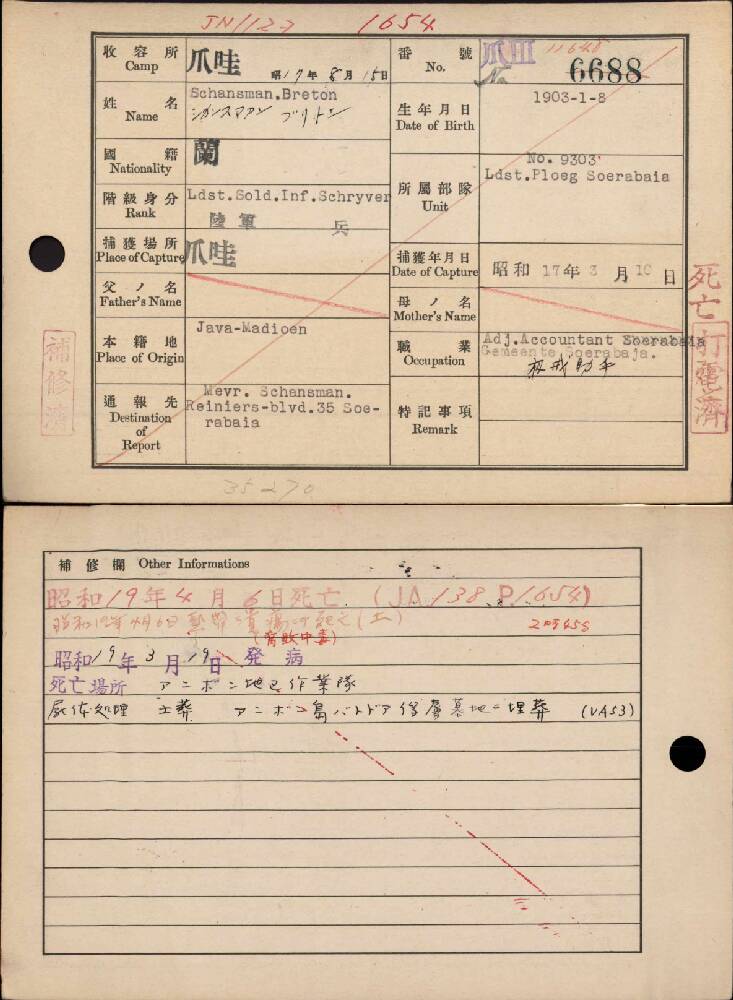 JN1127 1654
收容所 Camp 爪哇 昭17年8月15日
番號 No. 爪III 11648 No 6688
姓名 Name Schansman.Breton
シカンスマアン ブリトン
生年月日 Date of Birth 1903-1-8
國籍 Nationality 蘭
階級身分 Rank Ldst.Sold.Inf.Schryver
陸軍 兵
所屬部隊 Unit No. 9303
Ldst.Ploeg Soerabaia
捕獲場所 Place of Capture 爪哇
捕獲年月日 Date of Capture 昭和 17年 3月 10日
父ノ名 Father's Name
母ノ名 Mother's Name
本籍地 Place of Origin Java-Madioen
職業 Occupation Adj.Accountant Soerabaia
Gemeente Soerabaja.
助手
通報先 Destination of Report Mevr. Schansman.
Reiniers-blvd.35 Soe-
rabaia
特記事項 Remark
補修濟
死亡 打電濟
35270
補修欄 Other Informations
昭和19年4月6日死亡 (JA 138 P.1654)
昭和19年4月6日
(腐敗中毒)
昭和19年3月19日 発病
死亡場所 アンボン地区作業隊
屍体処理 土葬 アンボン島 墓地ニ埋葬 (VA53)